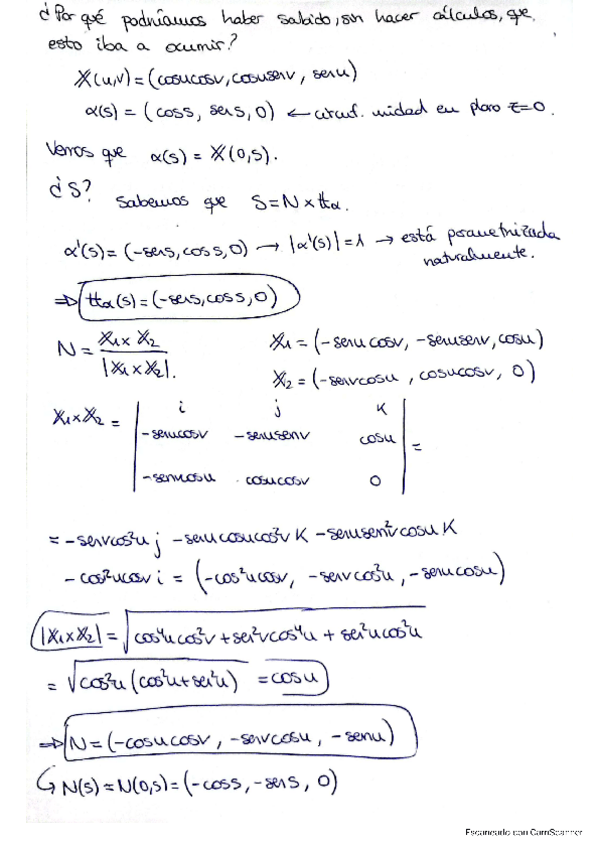 ¿Por qué podríamos haber sabido, sin hacer cálculos, que
esto iba a ocurrir?
X(u,v) = (cosucosv, cosusenv, senu)
α(s) = (coss, sens, 0) ← circunf. unidad en plano z=0.
Vemos que α(s) = X(0,s).
¿S? Sabemos que S = N × tα.
α'(s) = (-sens, coss, 0) → |α'(s)| = 1 → está parametrizada
naturalmente.
⇒ tα(s) = (-sens, coss, 0)
N = X₁ × X₂ / |X₁ × X₂|. X₁ = (-senucosv, -senusenv, cosu)
X₂ = (-senvcosu, cosucosv, 0)
X₁ × X₂ = | i j K
-senucosv -senusenv cosu
-senvcosu cosucosv 0 | =
= -senvcos²u j - senucosucos²v K - senusen²vcosu K
- cos²ucosv i = (-cos²ucosv, -senvcos²u, -senucosu)
|X₁ × X₂| = √(cos⁴ucos²v + sen²vcos⁴u + sen²ucos²u)
= √(cos²u (cos²u + sen²u)) = cosu
⇒ N = (-cosucosv, -senvcosu, -senu)
↳ N(s) = N(0,s) = (-coss, -sens, 0)
Escaneado con CamScanner